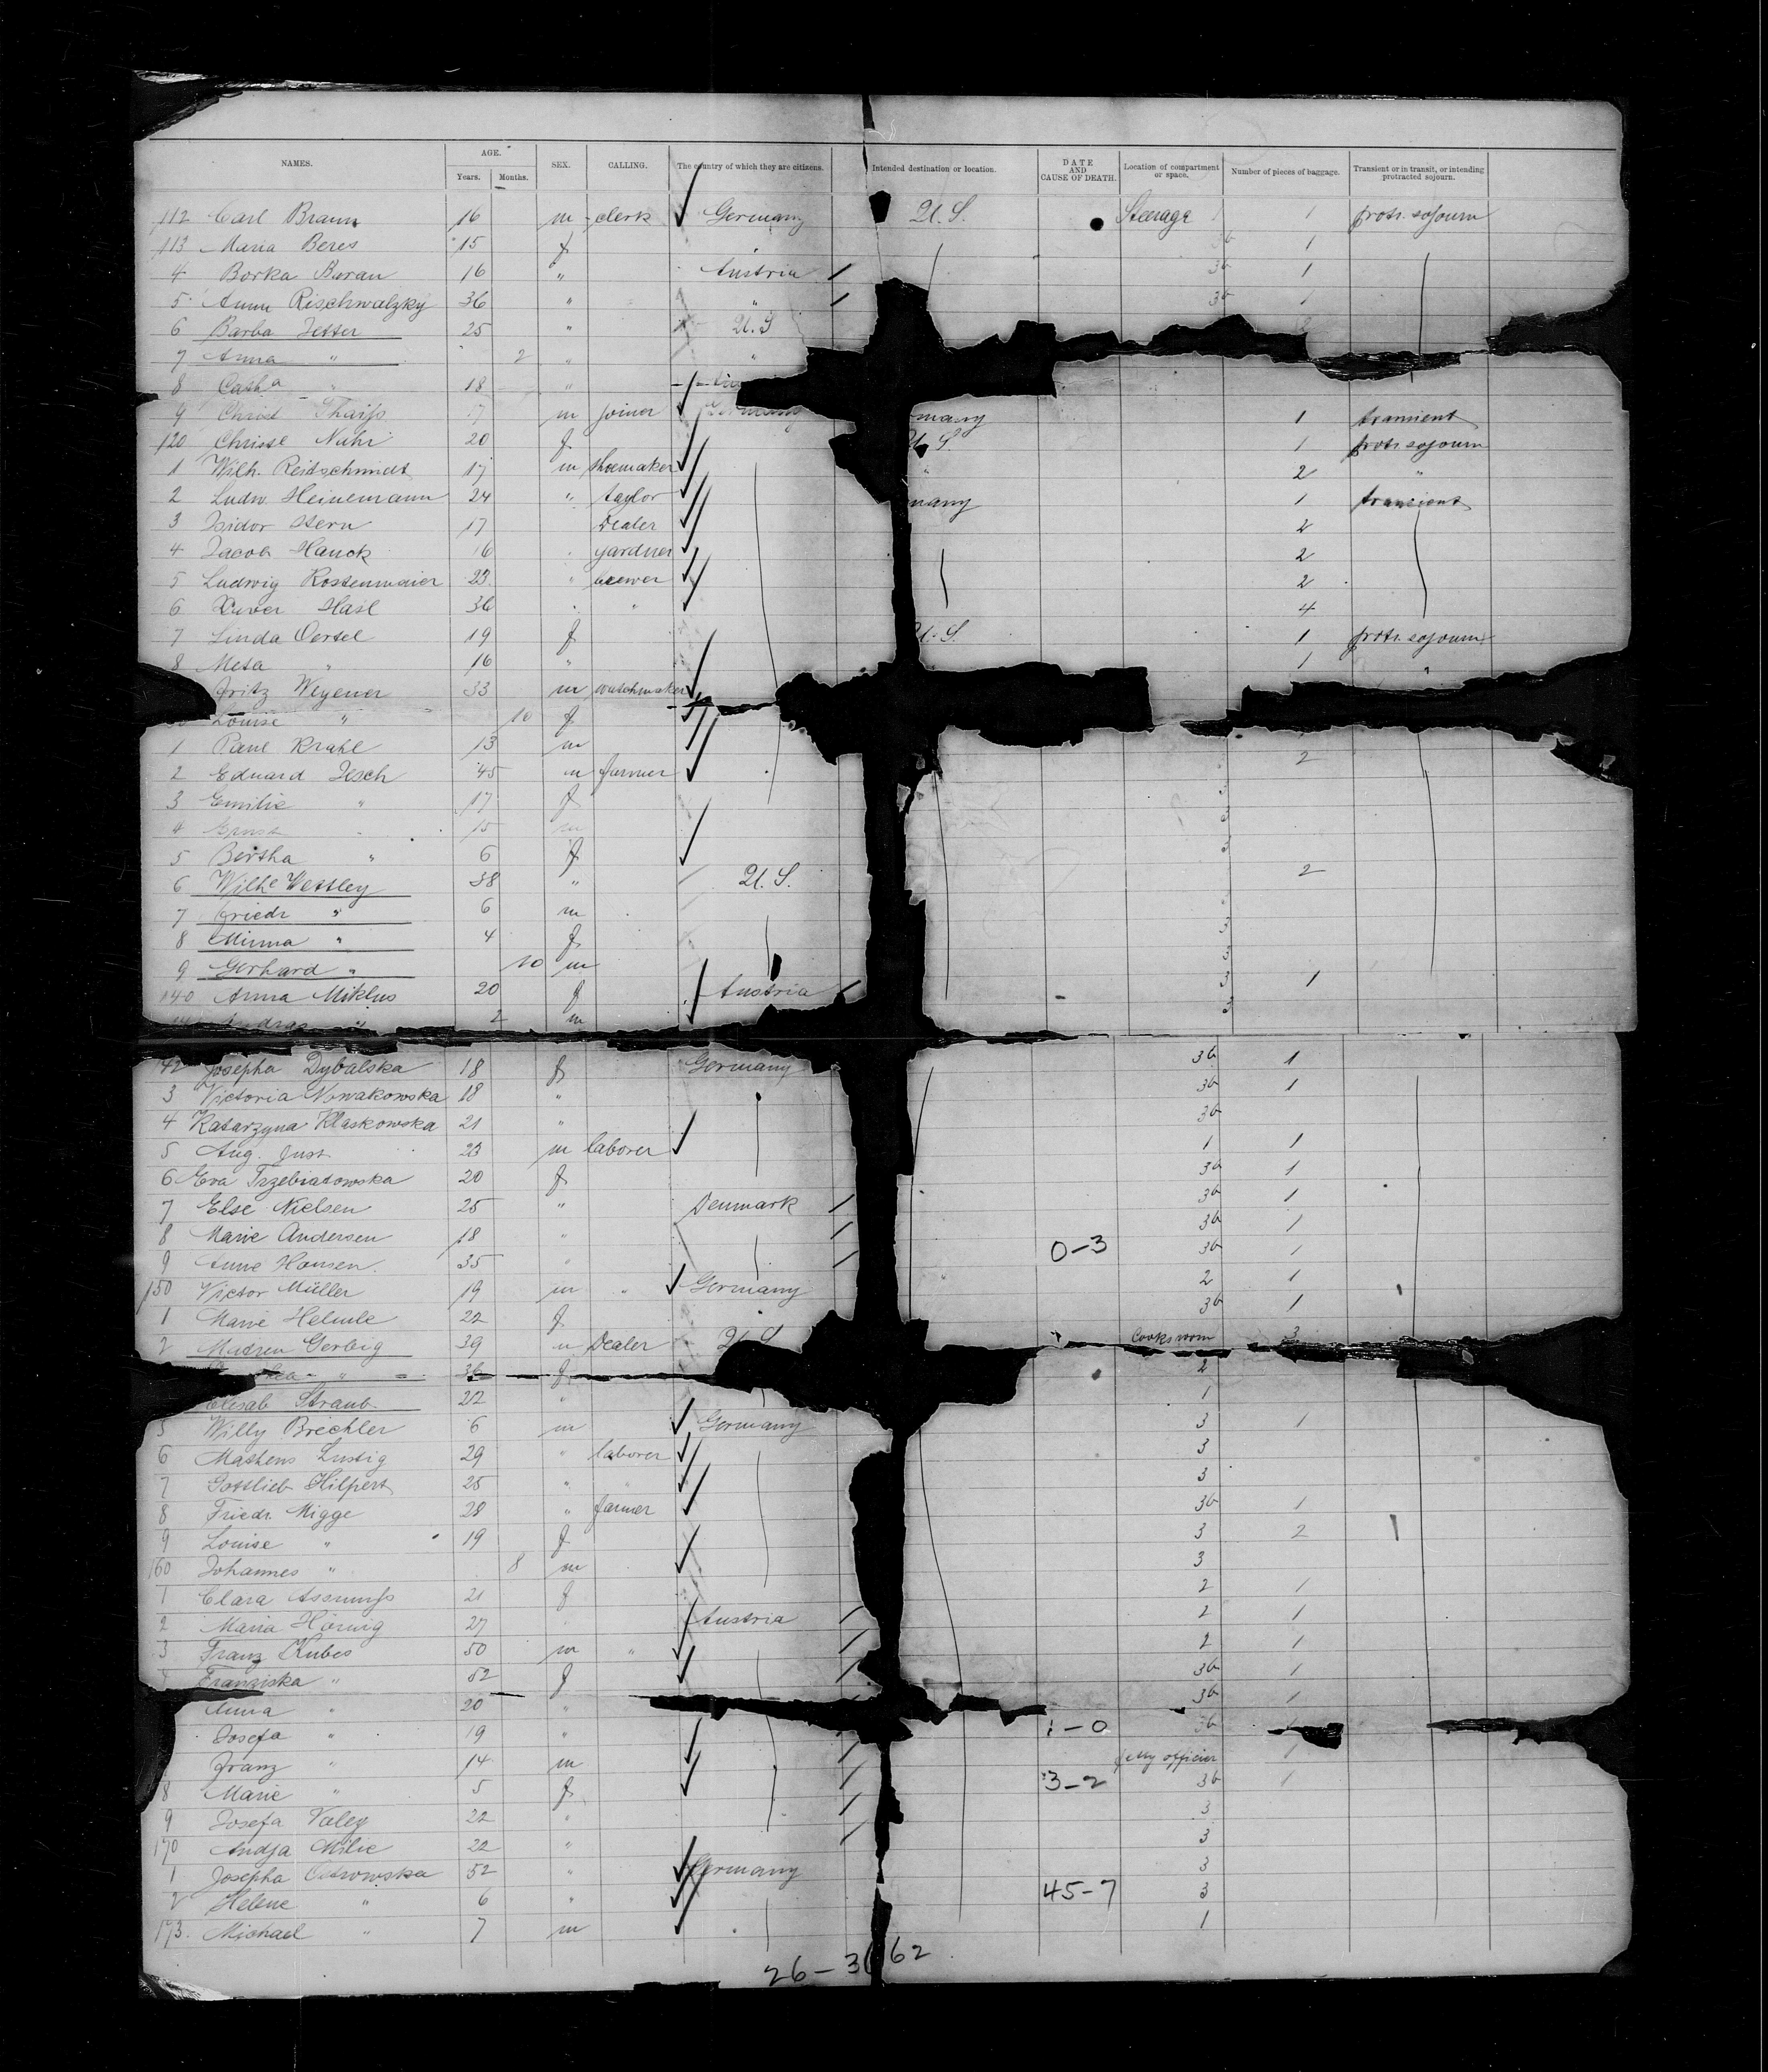 NAMES. AGE. Years. Months. SEX. CALLING. The country of which they are citizens. Intended destination or location. DATE AND CAUSE OF DEATH. Location of compartment or space. Number of pieces of baggage. Transient or in transit, or intending protracted sojourn.
112 Carl Braun 16 m clerk Germany U.S. Steerage 1 1 protr. sojourn
113 Maria Beres 15 f 3b 1
4 Borka Baran 16 " Austria 3b 1
5 Anna Rischwalzky 36 " " 3b 1
6 Barba Jetter 25 " U.S 2
7 Anna " 2 " "
8 Cath a " 18 "
9 Christ Thaiss 17 m joiner Germany many 1 transient
120 Christe Nuhr 20 f U.S 1 protr. sojourn
1 Wilh. Reitschmidt 17 m shoemaker " 2 "
2 Ludw. Heinemann 24 " taylor many 1 transient
3 Isidor Stern 17 Dealer 2
4 Jacob Hauck 16 gardner 2
5 Ludwig Rostenmaier 23 " brewer 2
6 Xaver Hasl 36 " " 4
7 Linda Oertel 19 f U.S. 1 protr. sojourn
8 Meta " 16 " 1 "
Fritz Wegener 33 m watchmaker
Louise " 10 f
1 Paul Krahl 13 m 2
2 Eduard Jesch 45 m farmer
3 Emilie " 17 f 3
4 Ernst 15 m 3
5 Bertha " 6 f 3
6 Wilhe Westley 38 " U.S. 2
7 Friedr " 6 m
8 Minna " 4 f 3
9 Gerhard " 10 m 3
140 Anna Miklus 20 f Austria 3 1
141 Andras " 2 m 3
42 Josepha Dybalska 18 f Germany 3b 1
3 Victoria Nowakowska 18 " 3b 1
4 Katarzyna Klaskowska 21 " 3b
5 Aug. Just 23 m laborer 1 1
6 Eva Trzebiatowska 20 f 3b 1
7 Else Nielsen 25 " Denmark 3b 1
8 Marie Andersen 18 " 3b 1
9 Anne Hansen 35 " 0-3 3b 1
150 Victor Müller 19 m " Germany " 2 1
1 Marie Helmle 22 f 3b 1
2 Andreu Gerbig 39 m Dealer U.S Cooks room 3
" 36 f 2
Elisab Straub 22 " 1
5 Willy Brechler 6 m Germany 3 1
6 Mathens Lustig 29 " laborer 3
7 Gottlieb Hilpert 25 " " 3
8 Friedr. Migge 28 " farmer 3b 1
9 Louise " 19 f 3 2
160 Johannes " 8 m 3
1 Clara Assmuss 21 f 2 1
2 Maria Hörnig 27 Austria 2 1
3 Franz Kubes 50 m " 2 1
Franziska " 52 f 3b 1
Anna " 20 " 3b 1
Josefa " 19 " 1-0 3b
Franz " 14 m Petty officier 1
8 Marie " 5 f 3-2 3b 1
9 Josefa Valey 22 " 3
170 Andja Milic 22 " 3
1 Josepha Ostrowska 52 " Germany 3
2 Helene " 6 " 45-7 3
173. Michael " 7 m 1
26-3 62